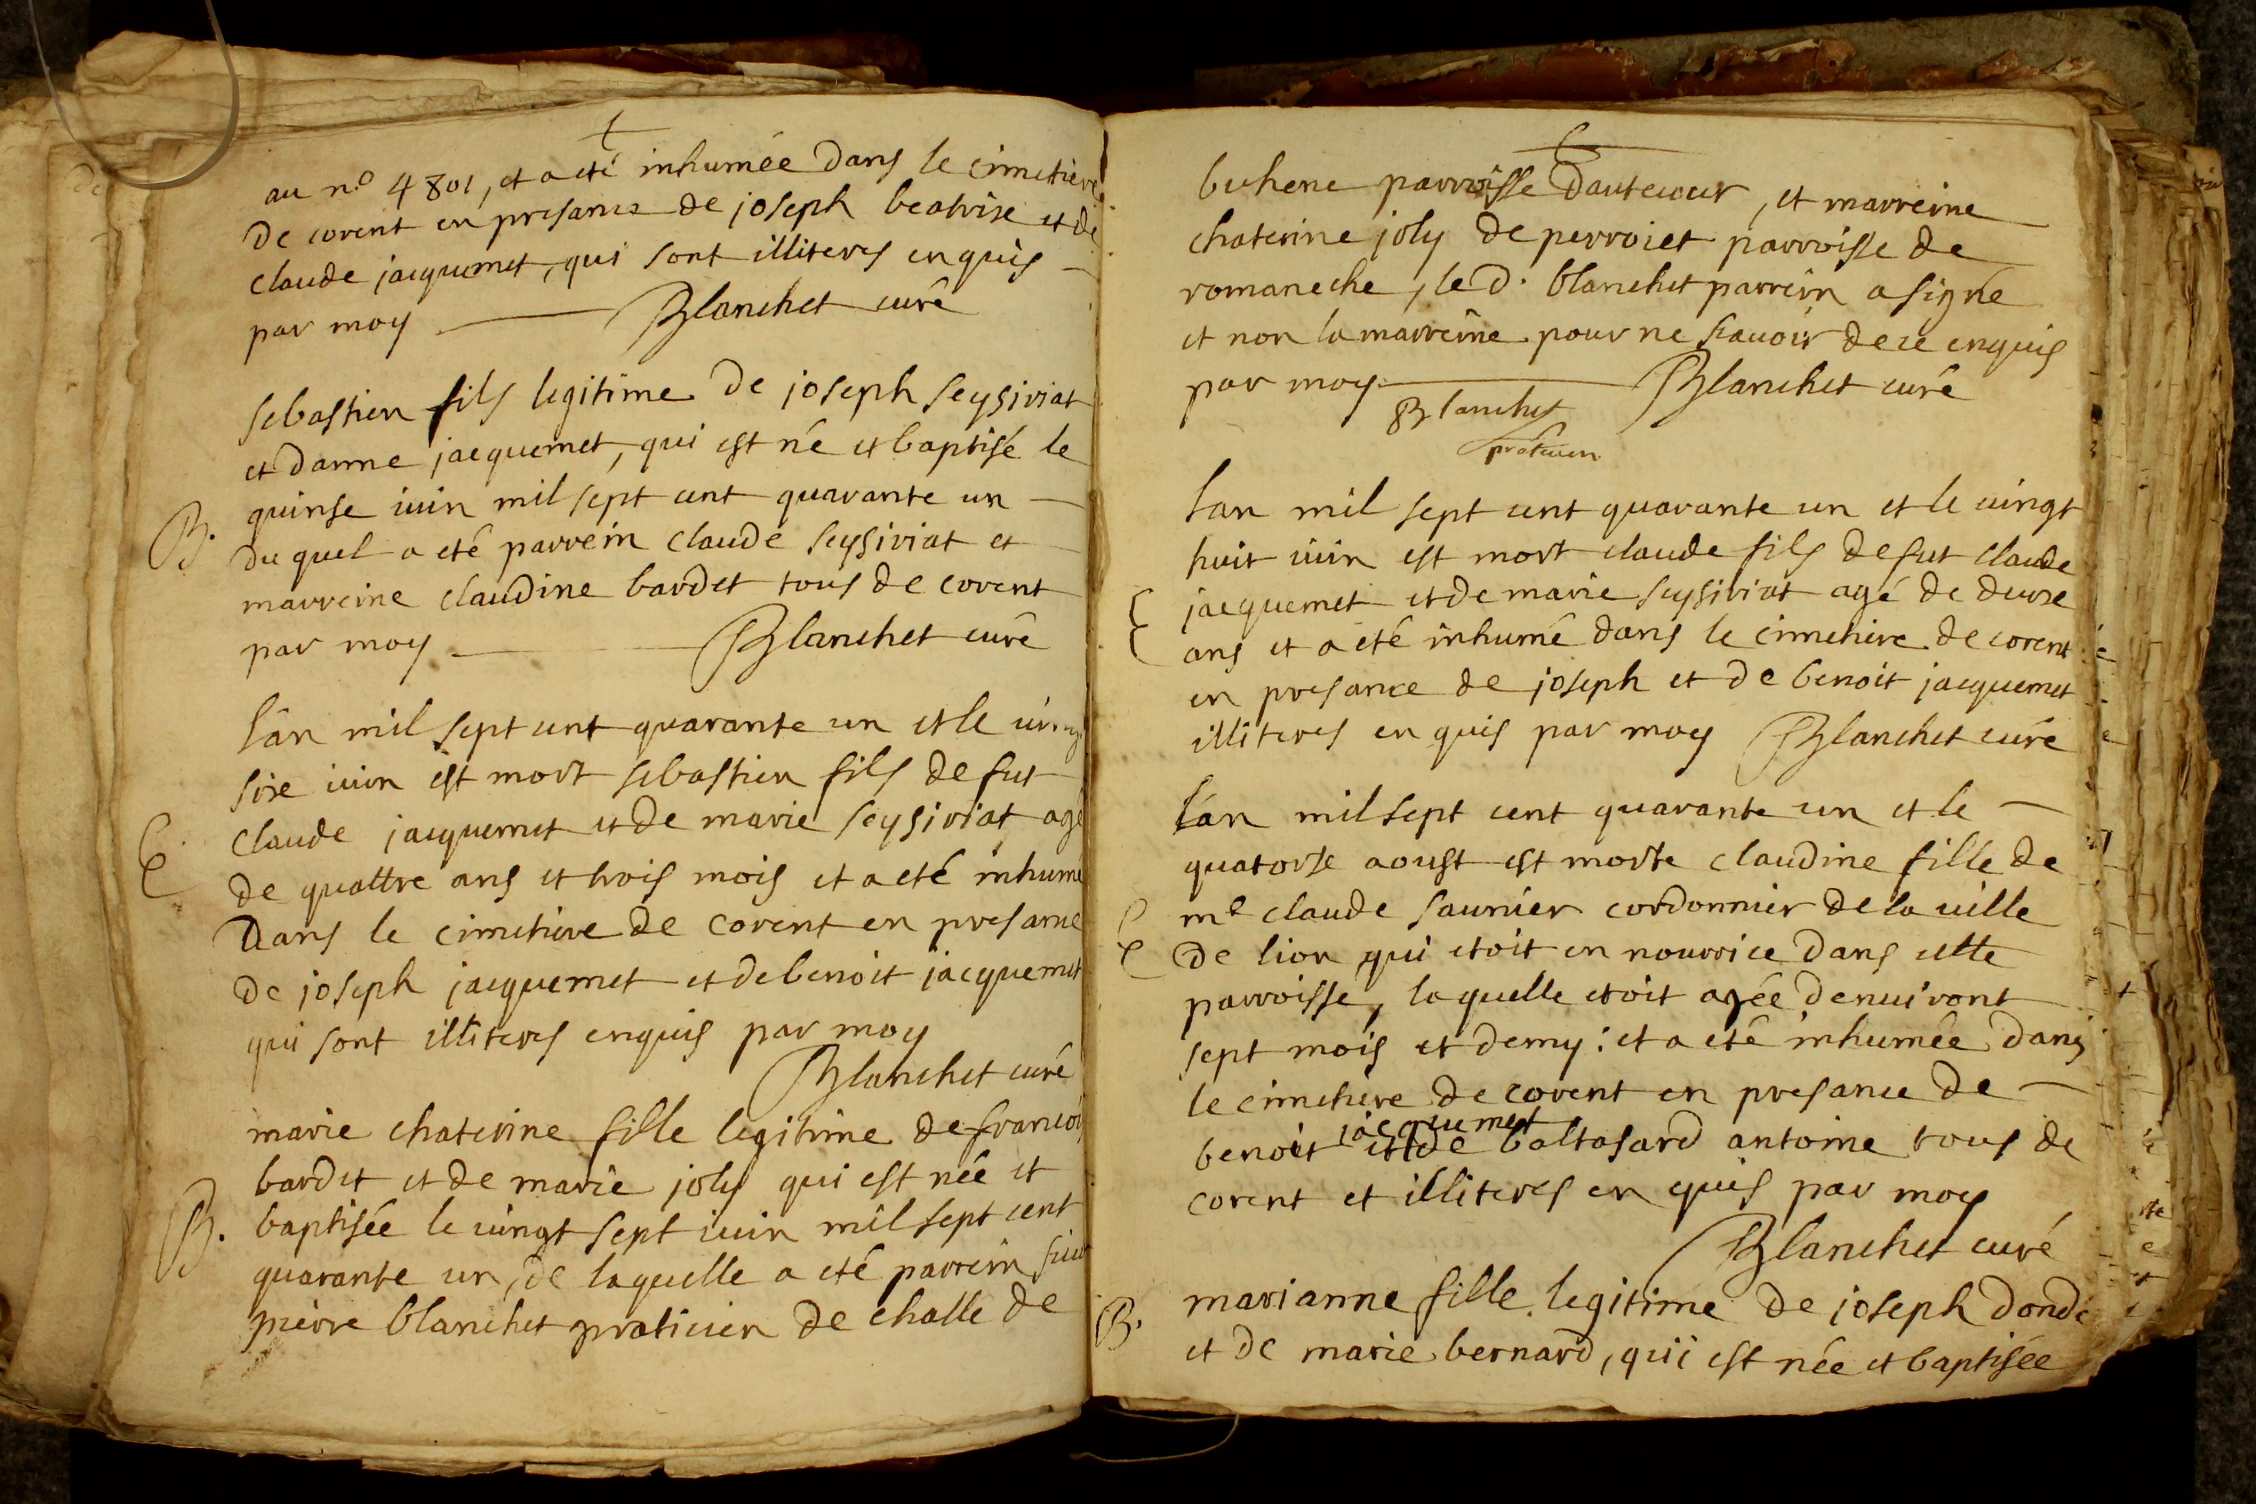 au n.o 4801, et a eté inhumée dans le cimetiere
de corent en presance de joseph beatrise et de
claude jacquemet, qui sont illiteres enquis
par moy Blanchet curé
sebastien fils legitime de joseph seysiriat
et danne jacquemet, qui est né et baptisé le
quinse iuin mil sept cent quarante un
B. du quel a eté parrein claude seysiriat et
marreine claudine bardet tous de corent
par moy Blanchet curé
l'an mil sept cent quarante un et le uingt
sixe iuin est mort sebastien fils de fut
claude jacquemet et de marie seysiriat agé
de quattre ans et trois mois et a eté inhumé
Dans le cimetiere de corent en presance
de joseph jacquemet et de benoit jacquemet
qui sont illiteres enquis par moy
Blanchet curé
marie chaterine fille legitime de francois
bardet et de marie joly qui est née et
B. baptisée le uingt sept iuin mil sept cent
quarante un, de laquelle a eté parrein sieur
pierre blanchet praticien de challe de
buhene parroisse dautecour, et marreine
chaterine joly de perroiet parroisse de
romaneche, le d. blanchet parrein a signé
et non la marreine pour ne scauoir de ce enquis
par moy Blanchet curé
Blanchet
praticien
lan mil sept cent quarante un et le uingt
huit iuin est mort claude fils de fut claude
jacquemet et de marie seysiriat agé de deuxe
ans et a eté inhumé dans le cimetiere de corent
en presance de joseph et de benoit jacquemet
illiteres enquis par moy Blanchet curé
l'an mil sept cent quarante un et le
quatorse aoust est morte claudine fille de
me claude saunier cordonnier de la uille
de lion qui etoit en nourrice dans cette
parroisse, laquelle etoit agée denuiront
sept mois et demy: et a eté inhumée dans
le cimetiere de corent en presance de
jacquemet
benoit et de baltasard antoine tous de
corent et illiteres enquis par moy
Blanchet curé
marianne fille legitime de joseph donde
B. et de marie bernard, qui est née et baptisée